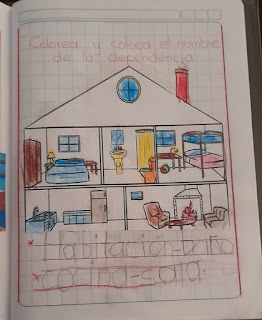 Colorea y coloca el nombre
de la dependencia
* Habitación-baño
* cocina-sala